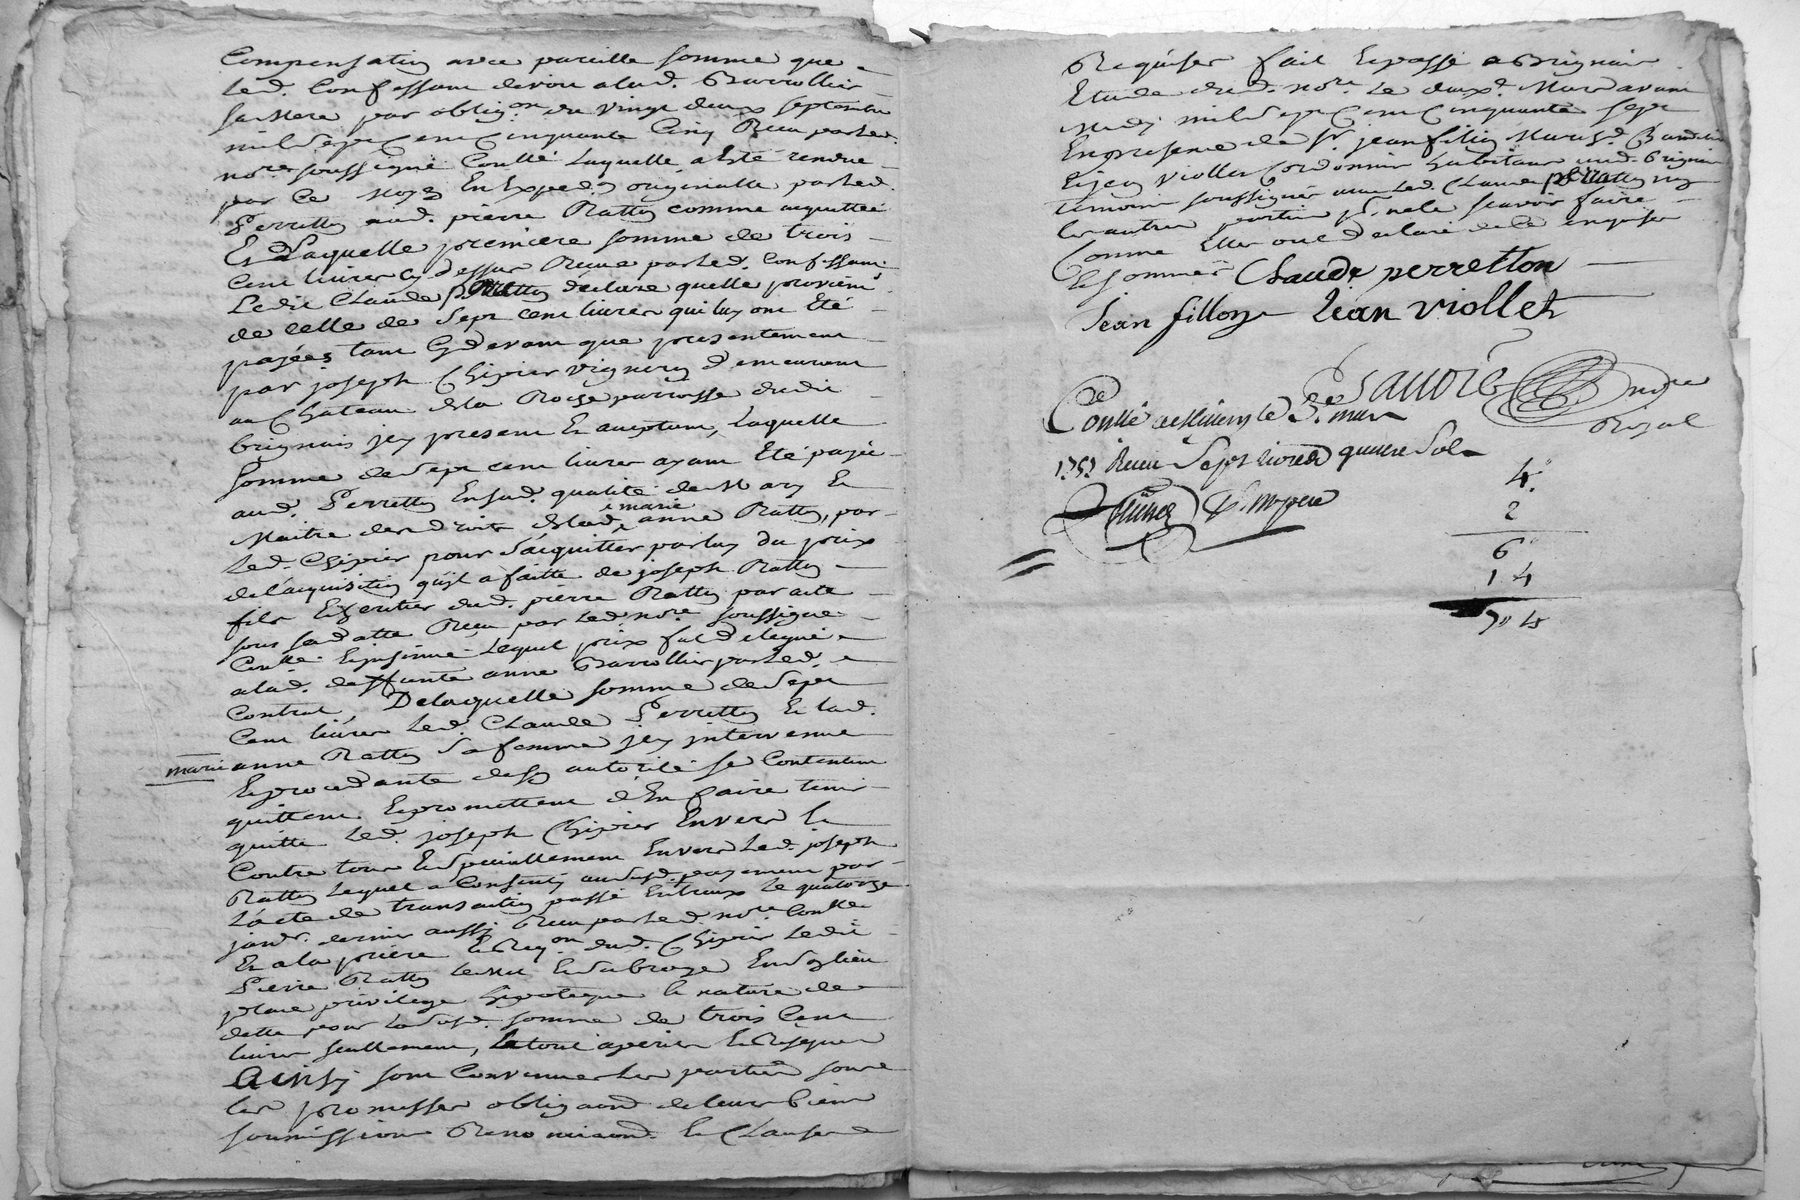 Compensation avec pareille somme que
led. Confessant devoit a lad. Barrollier
sa mere par oblig.on du vingt deux septembre
mil sept Cent Cinquante Cinq Recu par led.
no.re soussigné Contlé Laquelle a Esté rendue
par ce moyen En Exped.on originalle par led.
Perretton aud. pierre Ratton comme acquittée
Et Laquelle premiere somme de trois
Cent livres Cy dessus Recue par led. Confessant
Ledit Claude perretton déclare quelle provient
de celle de Sept cent livres qui luy ont Eté
payées tant Cy devant que presentement
par joseph Chipier vigneron demeurant
au Chateau de la Roche parroisse dudit
brignais jcy present Et acceptant, Laquelle
somme de Sept cent livres ayant Eté payée
aud. Perretton En sad. qualité de Mary Et
Maitre des droits de lad. marie anne Ratton, par
led. Chipier pour S'acquitter par luy du prix
de l'acquisition qu'il a faitte de joseph Ratton
fils heritier dud. pierre Ratton par acte
sous sa datte Recu par led. no.re soussigné
Contlé Et jnsinué Lequel prix fut delegué
a lad. deffunte anne Barrollier par led.
Contrat, De laquelle somme de Sept
Cent livres led. Claude Perretton Et lad.
marie anne Ratton Sa femme jcy jntervenue
Et procedante de son autorité se Contentent
quittent Et promettent d'En faire tenir
quitte led. joseph Chipier Envers Et
Contre tous Et Speciallement Envers led. joseph
Ratton Lequel a Consenty au Susd. payement par
L'acte de transaction passé Entr'eux le quatorze
janv.r dernier aussy Recu par led. no.re Contlé
Et a la priere Et Req.on dud. Chipier Ledit
Pierre Ratton le met Et Subroge En Son lieu
place privilege hipoteque Et nature de
dette pour la Susd. somme de trois Cent
livres seullement, Le tout a perils Et Risques
Ainsy sont Convenues les parties sous
les promesses oblig.ons de leurs biens
soumissions Renonciaons. Et Clauses
Requises fait Et passé a Brignais
Etude dud. no.re Le deux.e Mars avant
Midy mil Sept Cent Cinquante Sept
En presence de Sr. jean fillion
Et jean Viollet Cordonnier habitans aud. brignais
temoins soussignés avec led. Claude perretton non
les autres parties p.r ne le scavoir faire
Comme Elles ont declaré de ce enquises
Et sommées Claude perretton
Jean fillon Jean viollet
De Savoie no.re
Royal
Contlé a St. le 3.e mars
1757 Recu Sept livres quatre Sols
4
2
6
1 4
7" 4